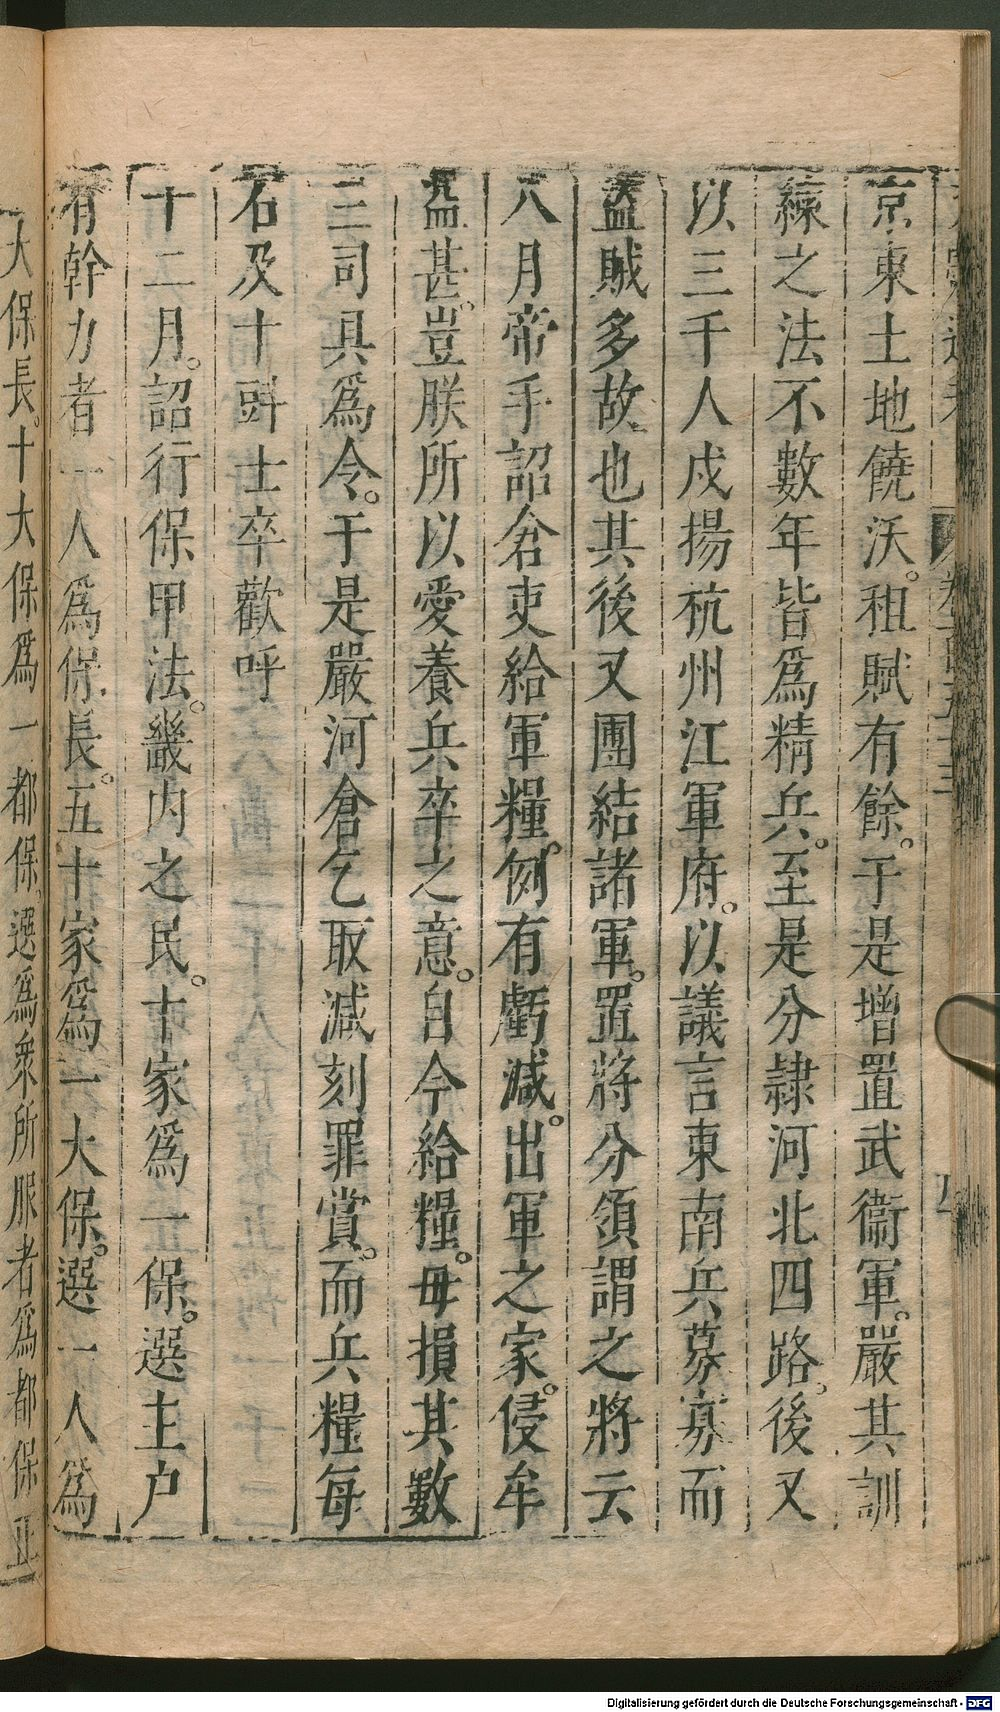 京東土地饒沃。租賦有餘。于是增置武衞軍。嚴其訓
練之法不數年皆爲精兵。至是分隷河北四路。後又
以三千人戍揚杭州江軍府。以議言東南兵募寡而
盜賊多故也其後又團結諸軍。置將分領謂之將云
八月帝手詔倉吏給軍糧。例有虧減。出軍之家。侵牟
益甚。豈朕所以愛養兵卒之意。自今給糧。毋損其數
三司具爲令。于是嚴河倉乞取減刻罪賞。而兵糧每
石及十㪷士卒歡呼
十二月。詔行保甲法。畿内之民。十家爲一保。選主户
有幹力者一人爲保長。五十家爲一大保。選一人爲
大保長。十大保爲一都保。選爲衆所服者爲都保正
Digitalisierung gefördert durch die Deutsche Forschungsgemeinschaft - DFG